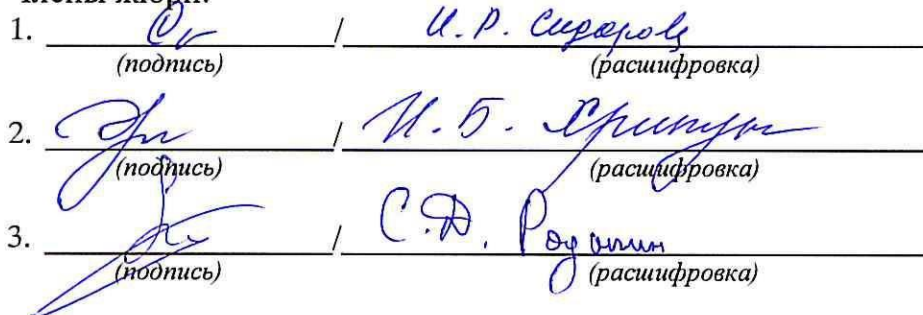 члены жюри:
1. / И. Р. Сидорова
(подпись) (расшифровка)
2. / И. Б. Хрипун
(подпись) (расшифровка)
3. / С. Д. Родинин
(подпись) (расшифровка)